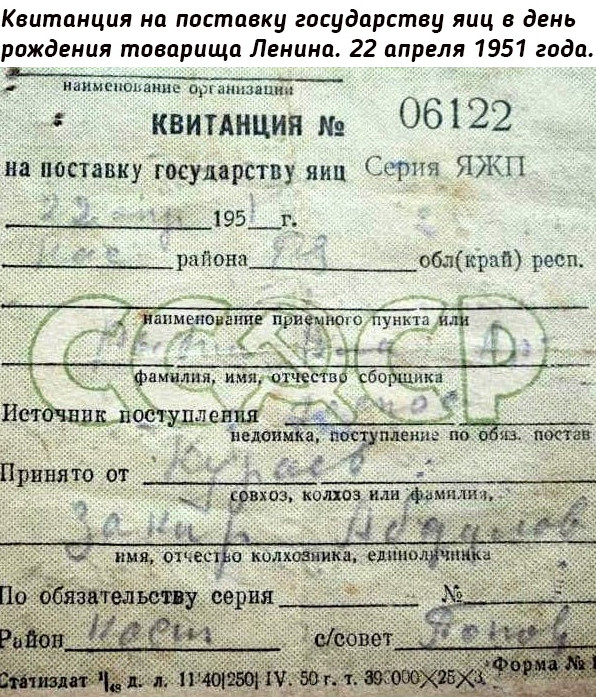 Квитанция на поставку государству яиц в день
рождения товарища Ленина. 22 апреля 1951 года.
наименование организации
КВИТАНЦИЯ № 06122
на поставку государству яиц Серия ЯЖП
22 апр 1951 г.
района обл(край) респ.
СССР
наименование приемного пункта или
фамилия, имя, отчество сборщика
Источник поступления
недоимка, поступление по обяз. постав
Принято от Кураев
совхоз, колхоз или фамилия,
Закир Абдулов
имя, отчество колхозника, единоличника
По обязательству серия №
Район с/совет Попов
Форма № 1
Статиздат 1/48 д. л. 11 40|250| IV. 50 г. т. 39.000×25×3.